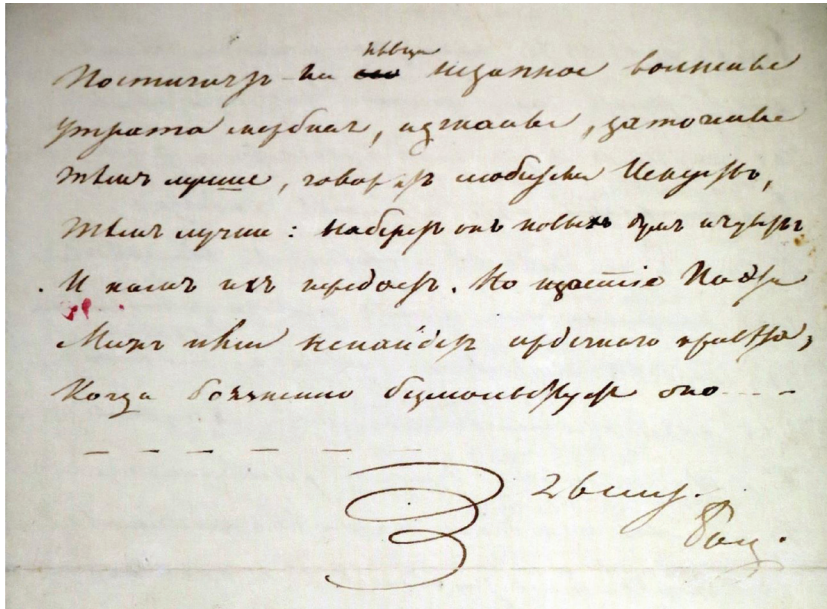 Постигнетъ ли пѣвца незапное волненье
Утрата скорбная, изгнанье, заточенье
Тѣмъ лучше, говорятъ любители Искуствъ,
Тѣмъ лучше: наберетъ онъ новыхъ думъ и чувствъ
И намъ ихъ передастъ. Но щастіе Поэта
Межъ ими ненайдетъ сердечнаго привѣта,
Когда боязненно безмолвствуетъ оно....
26 сент.